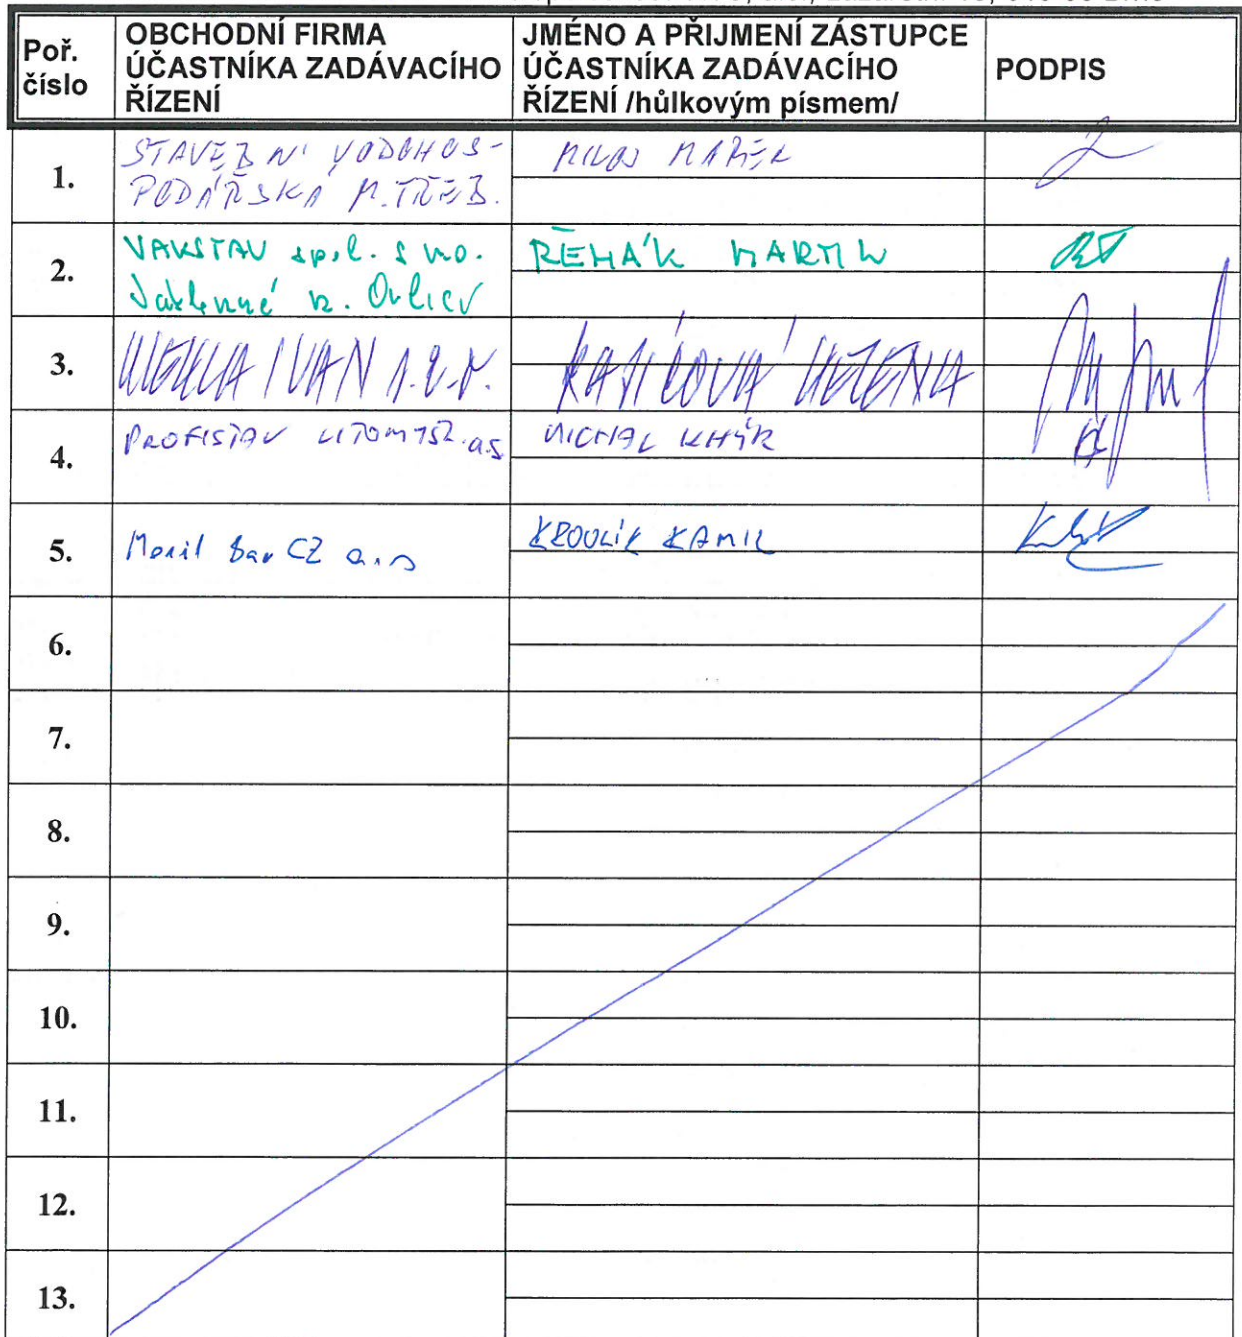 Poř.
číslo
OBCHODNÍ FIRMA
ÚČASTNÍKA ZADÁVACÍHO
ŘÍZENÍ
JMÉNO A PŘIJMENÍ ZÁSTUPCE
ÚČASTNÍKA ZADÁVACÍHO
ŘÍZENÍ /hůlkovým písmem/
PODPIS
1.
STAVEBNÍ VODOHOS-
PODÁŘSKÁ M.TŘEB.
MILOŠ MAREK
2.
VAKSTAV spol. s r.o.
Jablonné n. Orlicí
ŘEHÁK MARTIN
3.
IVAN
4.
PROFISTAV LITOMYŠL a.s
MICHAL KHÝR
5.
CZ a.s
KROULÍK KAMIL
6.
7.
8.
9.
10.
11.
12.
13.